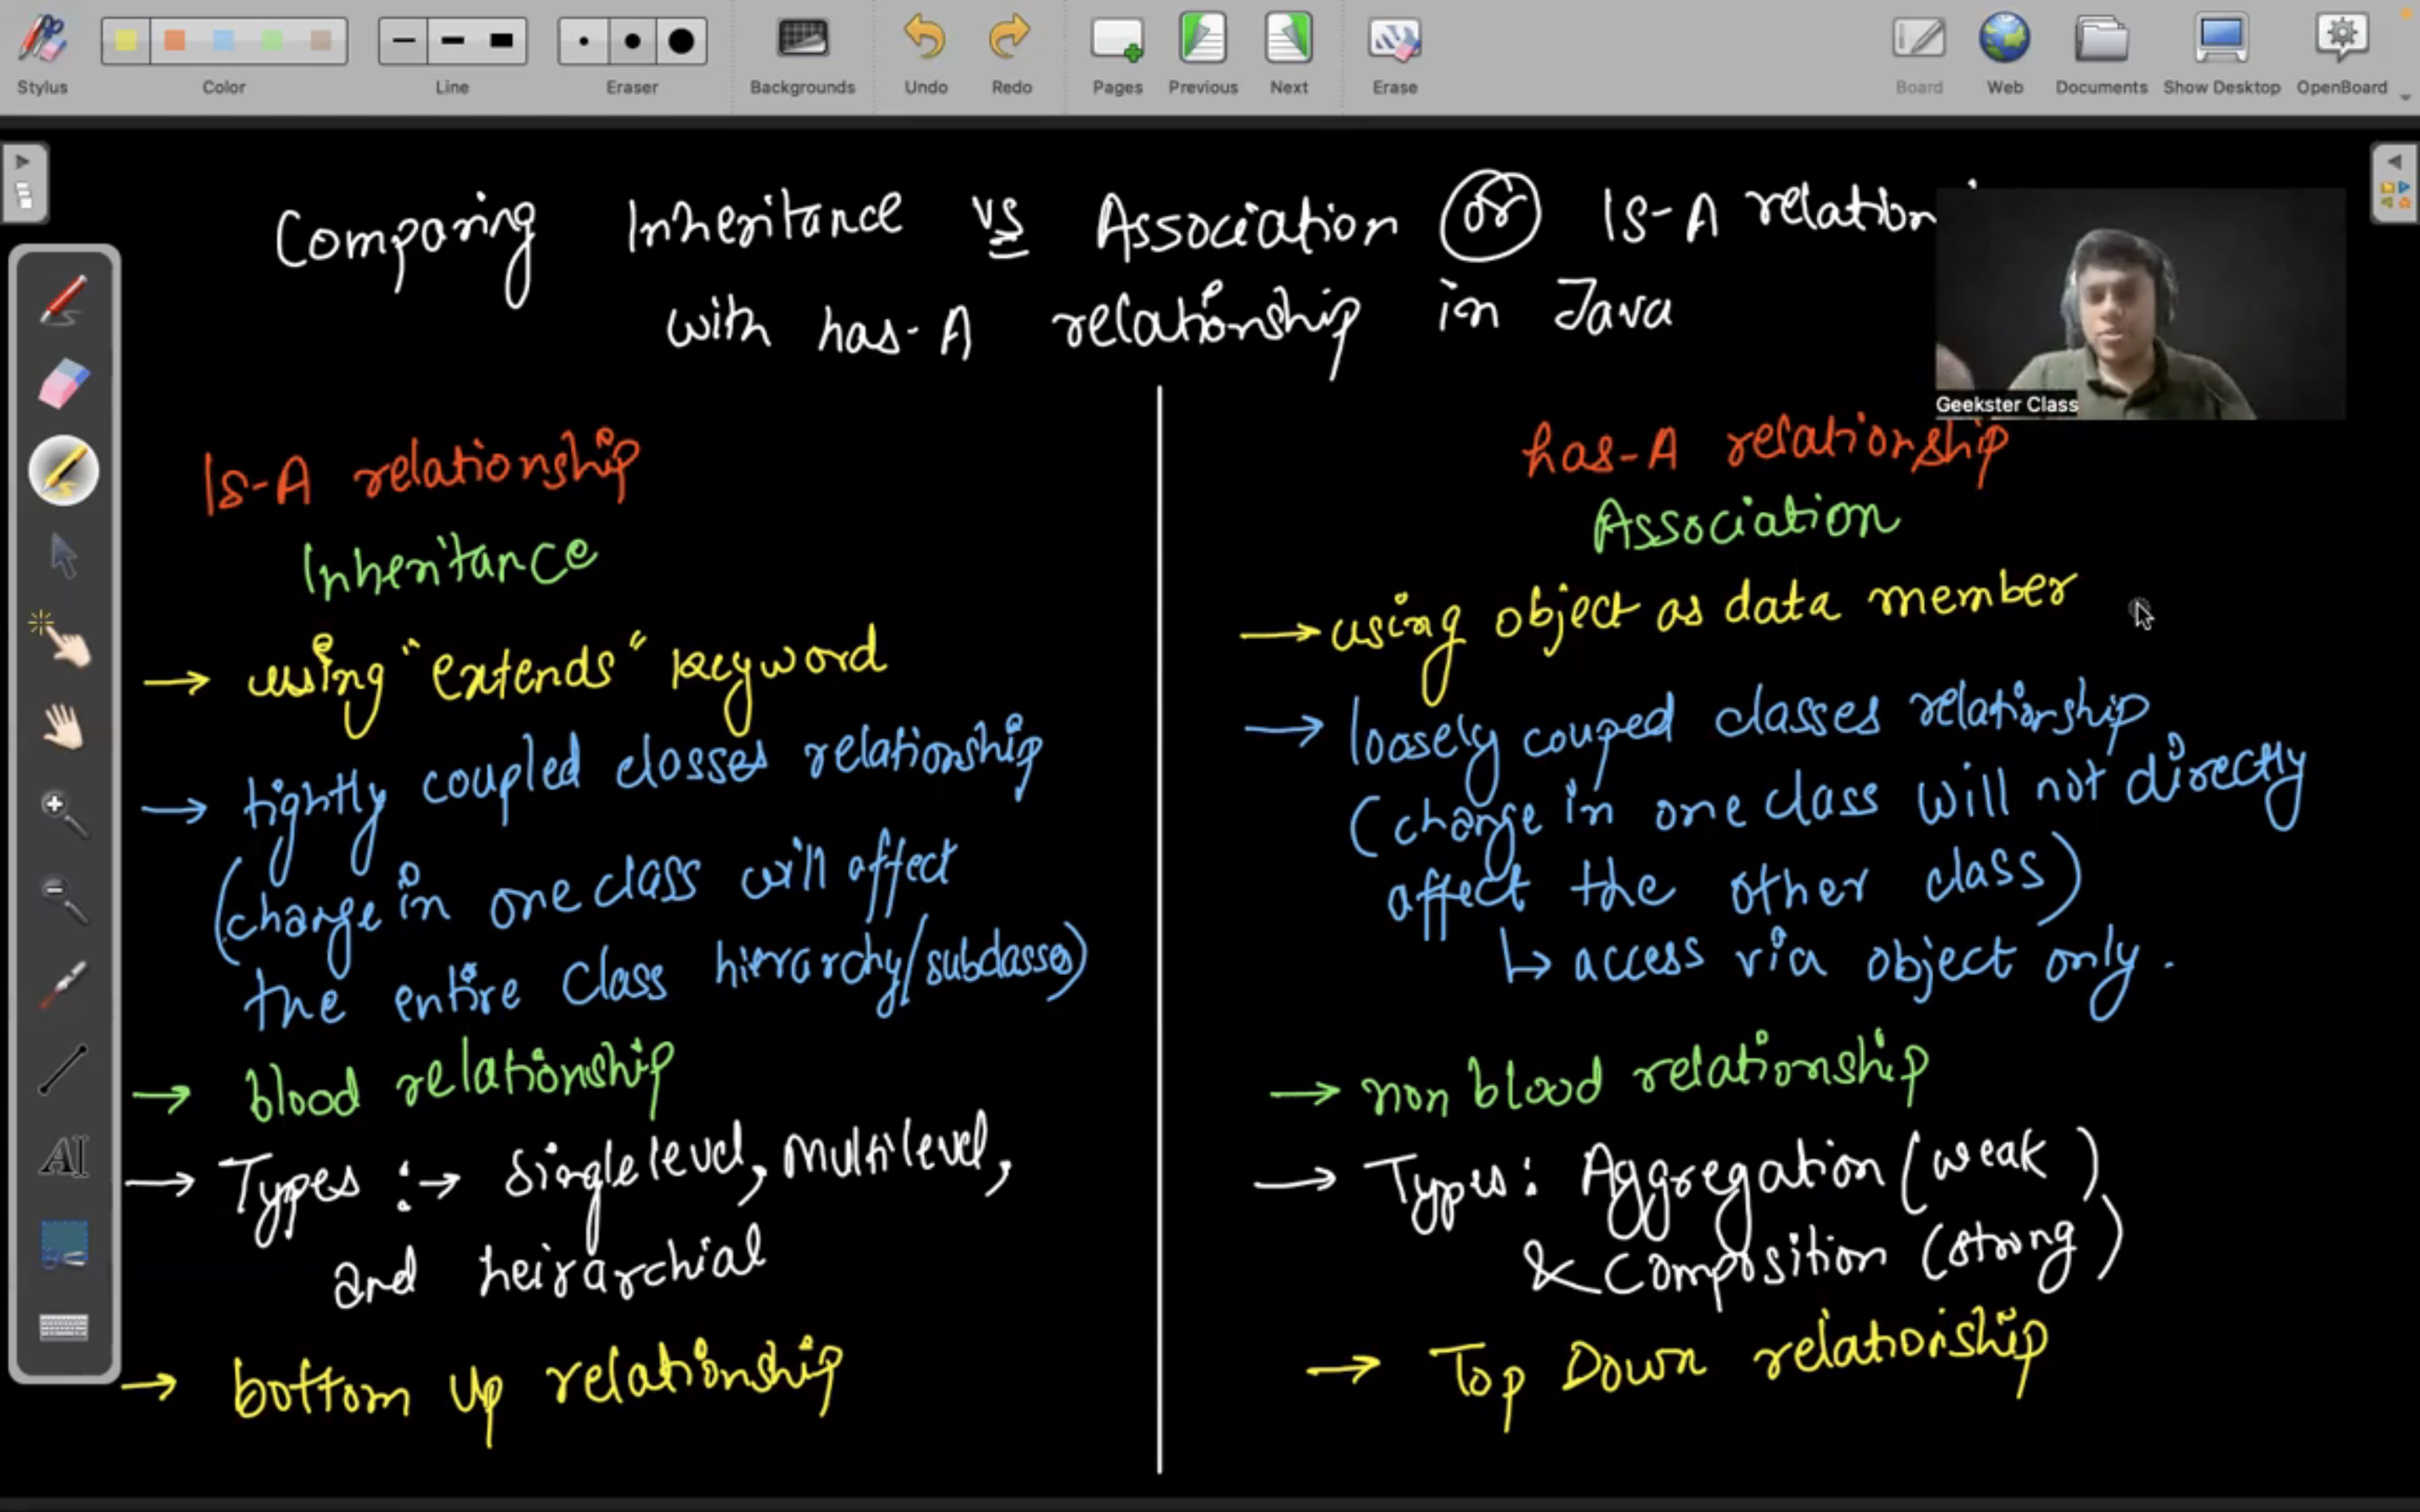 Stylus
Color
Line
Eraser
Backgrounds
Undo
Redo
Pages
Previous
Next
Erase
Board
Web
Documents
Show Desktop
OpenBoard
Comparing Inheritance vs Association or Is-A relation
with has-A relationship in Java
Geekster Class
Is-A relationship
Inheritance
→ using "extends" keyword
→ tightly coupled classes relationship
(change in one class will affect
the entire class hierarchy/subclasses)
→ blood relationship
→ Types :→ Single level, Multilevel,
and heirarchial
→ bottom up relationship
has-A relationship
Association
→ using object as data member
→ loosely couped classes relationship
(change in one class will not directly
affect the other class)
↳ access via object only.
→ non blood relationship
→ Types: Aggregation (weak)
& Composition (strong)
→ Top Down relationship
AI